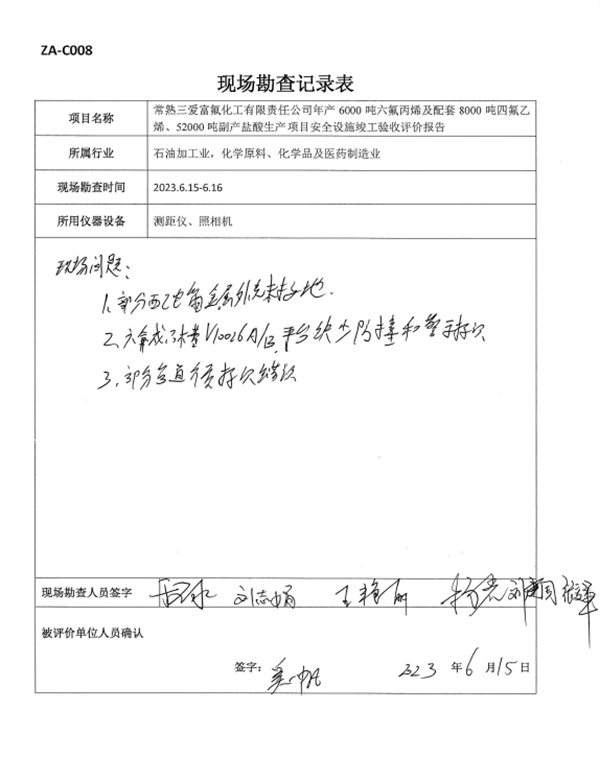 ZA-C008
现场勘查记录表
项目名称
常熟三爱富氟化工有限责任公司年产 6000 吨六氟丙烯及配套 8000 吨四氟乙
烯、52000 吨副产盐酸生产项目安全设施竣工验收评价报告
所属行业
石油加工业，化学原料、化学品及医药制造业
现场勘查时间
2023.6.15-6.16
所用仪器设备
测距仪、照相机
现场问题：
1. 部分配电箱金属外壳未接地.
2. 六氟 V10026A/B 平台缺少防撞和警示标识
3. 部分管道介质标识缺失
现场勘查人员签字
刘志娟
王艳丽
被评价单位人员确认
签字：
2023 年 6 月 15 日